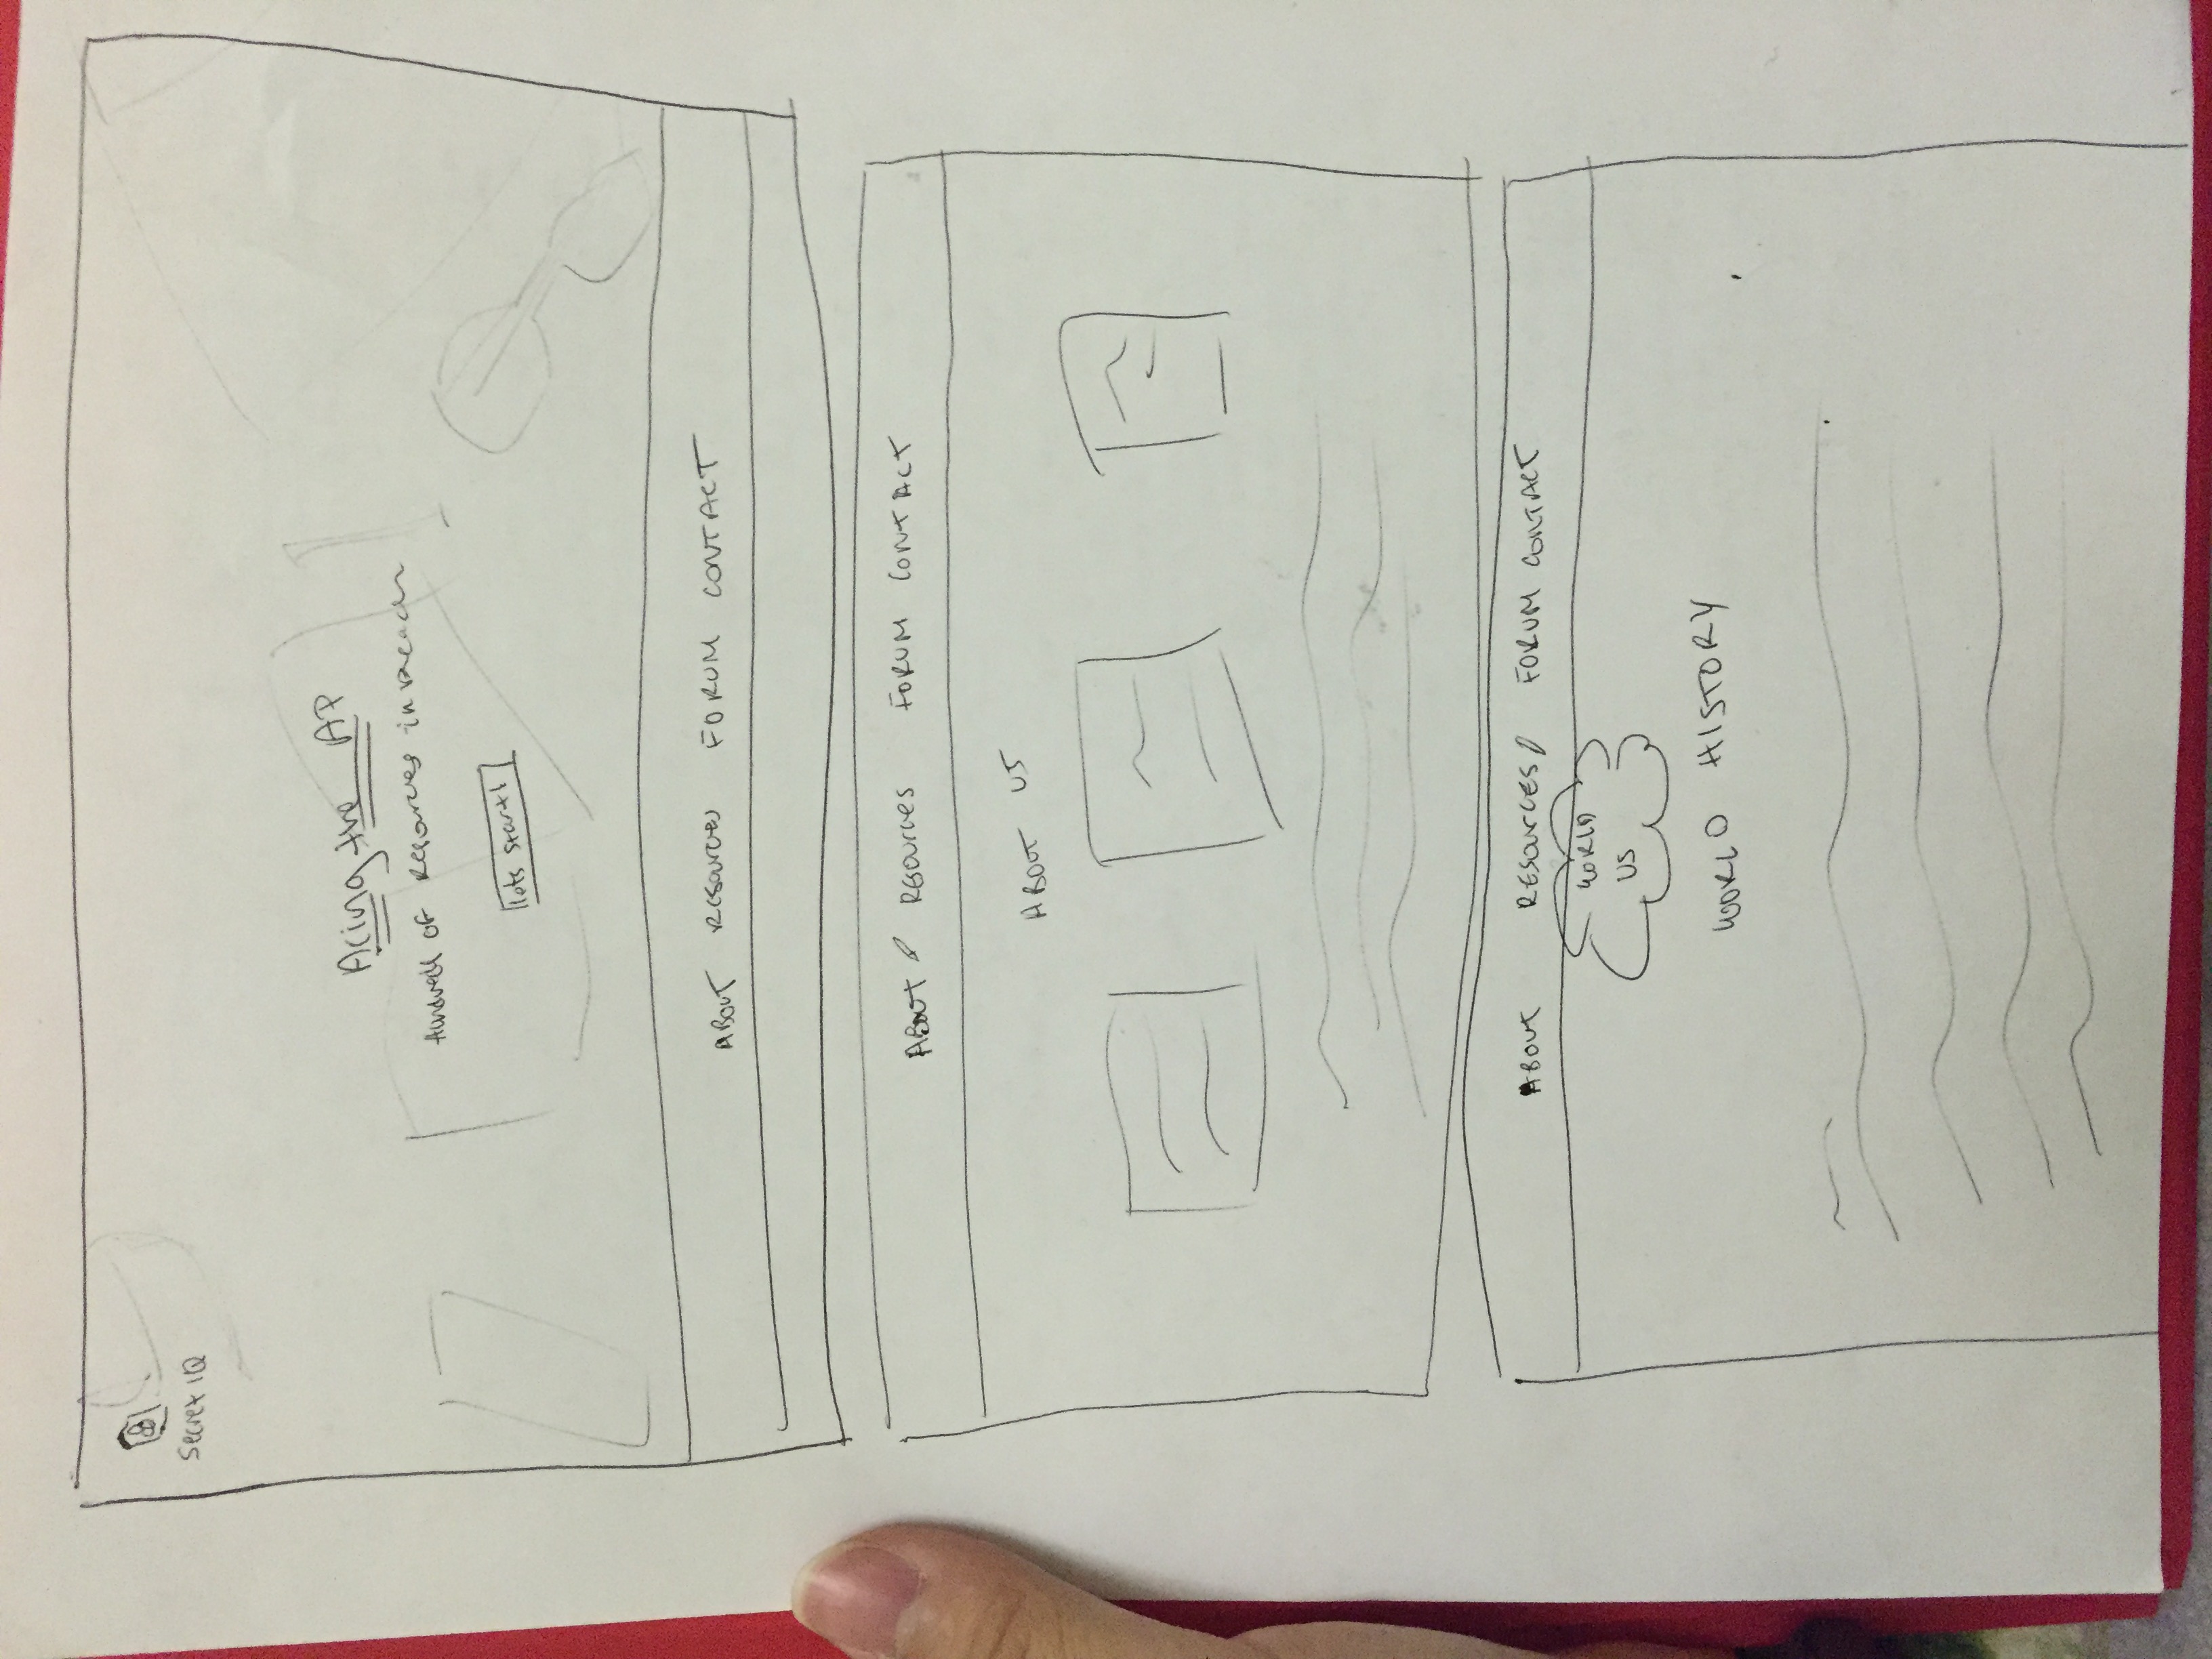 Secret IQ
Acing the AP
Hundreds of Resources in Reach
lets start!
ABOUT RESOURCES FORUM CONTACT
ABOUT RESOURCES FORUM CONTACT
ABOUT US
ABOUT RESOURCES FORUM CONTACT
WORLD
US
WORLD HISTORY